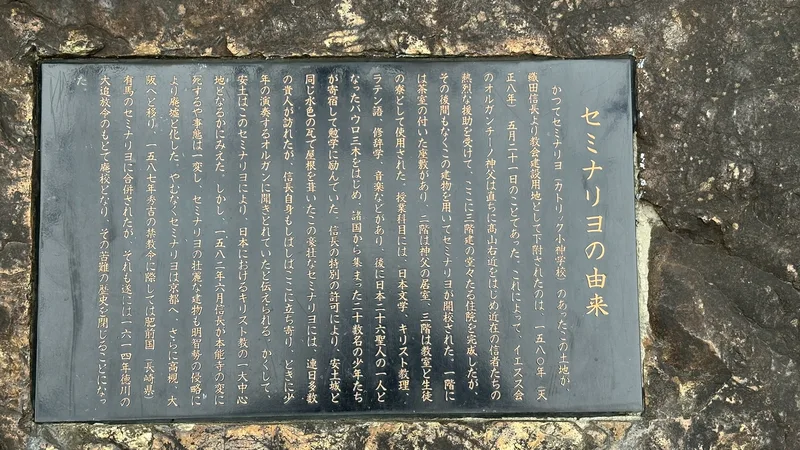 セミナリヨの由来
かつてセミナリヨ（カトリック小神学校）のあったこの土地が、
織田信長より教会建設用地として下附されたのは、一五八〇年（天
正八年）五月二十一日のことであった。これによって、イエズス会
のオルガンチーノ神父は直ちに高山右近をはじめ近在の信者たちの
熱烈な援助を受けて、ここに三階建の堂々たる住院を完成したが、
その後間もなくこの建物を用いてセミナリヨが開校された。一階に
は茶室の付いた座敷があり、二階は神父の居室、三階は教室と生徒
の寮として使用された。授業科目には、日本文学、キリスト教理、
ラテン語、修辞学、音楽などがあり、後に日本二十六聖人の一人と
なったパウロ三木をはじめ、諸国から集まった二十数名の少年たち
が寄宿して勉学に励んでいた。信長の特別の許可により、安土城と
同じ水色の瓦で屋根を葺いたこの豪壮なセミナリヨには、連日多数
の貴人が訪れたが、信長自身もしばしばここに立ち寄り、ときに少
年の演奏するオルガンに聞きほれていたと伝えられる。かくして、
安土はこのセミナリヨにより、日本におけるキリスト教の一大中心
地となるかにみえた。しかし、一五八二年六月信長が本能寺の変に
死するや事態は一変し、セミナリヨの壮麗な建物も明智勢の侵略に
より廃墟と化した。やむなくセミナリヨは京都へ、さらに高槻、大
阪へと移り、一五八七年秀吉の禁教令に際しては肥前国（長崎県）
有馬のセミナリヨに合併されたが、それも遂には一六一四年徳川の
大追放令のもとで廃校となり、その苦難の歴史を閉じることになっ
た。